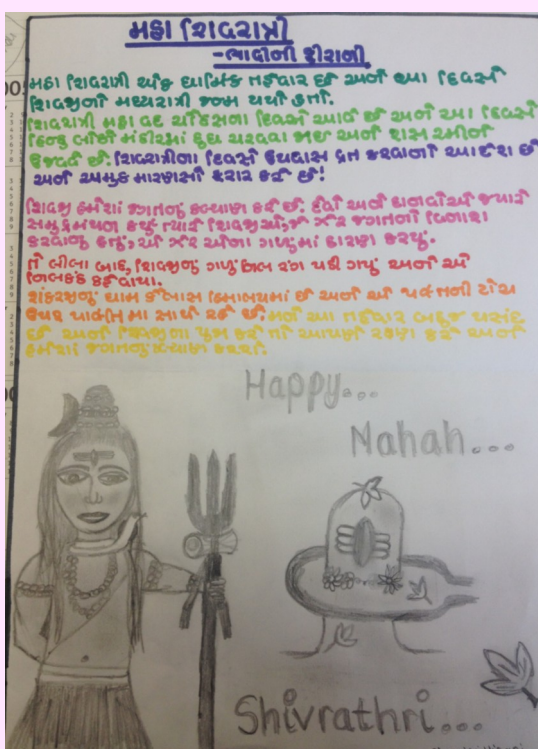 મહા શિવરાત્રી
-ભાદીની હીરાની
મહા શિવરાત્રી એક ધાર્મિક તહેવાર છે અને આ દિવસે
શિવજીનો મધ્યરાત્રી જન્મ થયો હતો.
શિવરાત્રી મહા વદ ચૌદસના દિવસે આવે છે અને આ દિવસે
હિન્દુ લોકો મંદીરમાં દુધ ચરવવા જાઇ અને રાસ રમીને
ઉજવે છે. શિવરાત્રીના દિવસે ઉપવાસ વ્રત કરવાનો આદેશ છે
અને અમુક મારણસો ફરાર કરે છે!
શિવજી હંમેશાં જગતનું કલ્યાણ કરે છે. દેવો અને દાનવોએ જ્યારે
સમુદ્રમંથન કર્યું ત્યારે શિવજીએ, જે ઝેર જગતનો વિનાશ
કરવાનું હતું, એ ઝેર એના ગળામાં ધારણ કર્યું.
તે લીલા બાદ, શિવજીનું ગળું નિલ રંગ પડી ગયું અને એ
નિલકંઠ કહેવાયા.
શંકરજીનું ધામ કૈલાસ હિમાલયમાં છે અને એ પર્વતની ટોચ
ઉપર પાર્વતિ મા સાથે રહે છે. મને આ તહેવાર બહુજ પસંદ
છે અને શિવજીના પુજા કરે તો આપણી રક્ષા કરે અને
હંમેશાં જગતનું કલ્યાણ કરશે.
Happy...
Mahah...
Shivrathri...